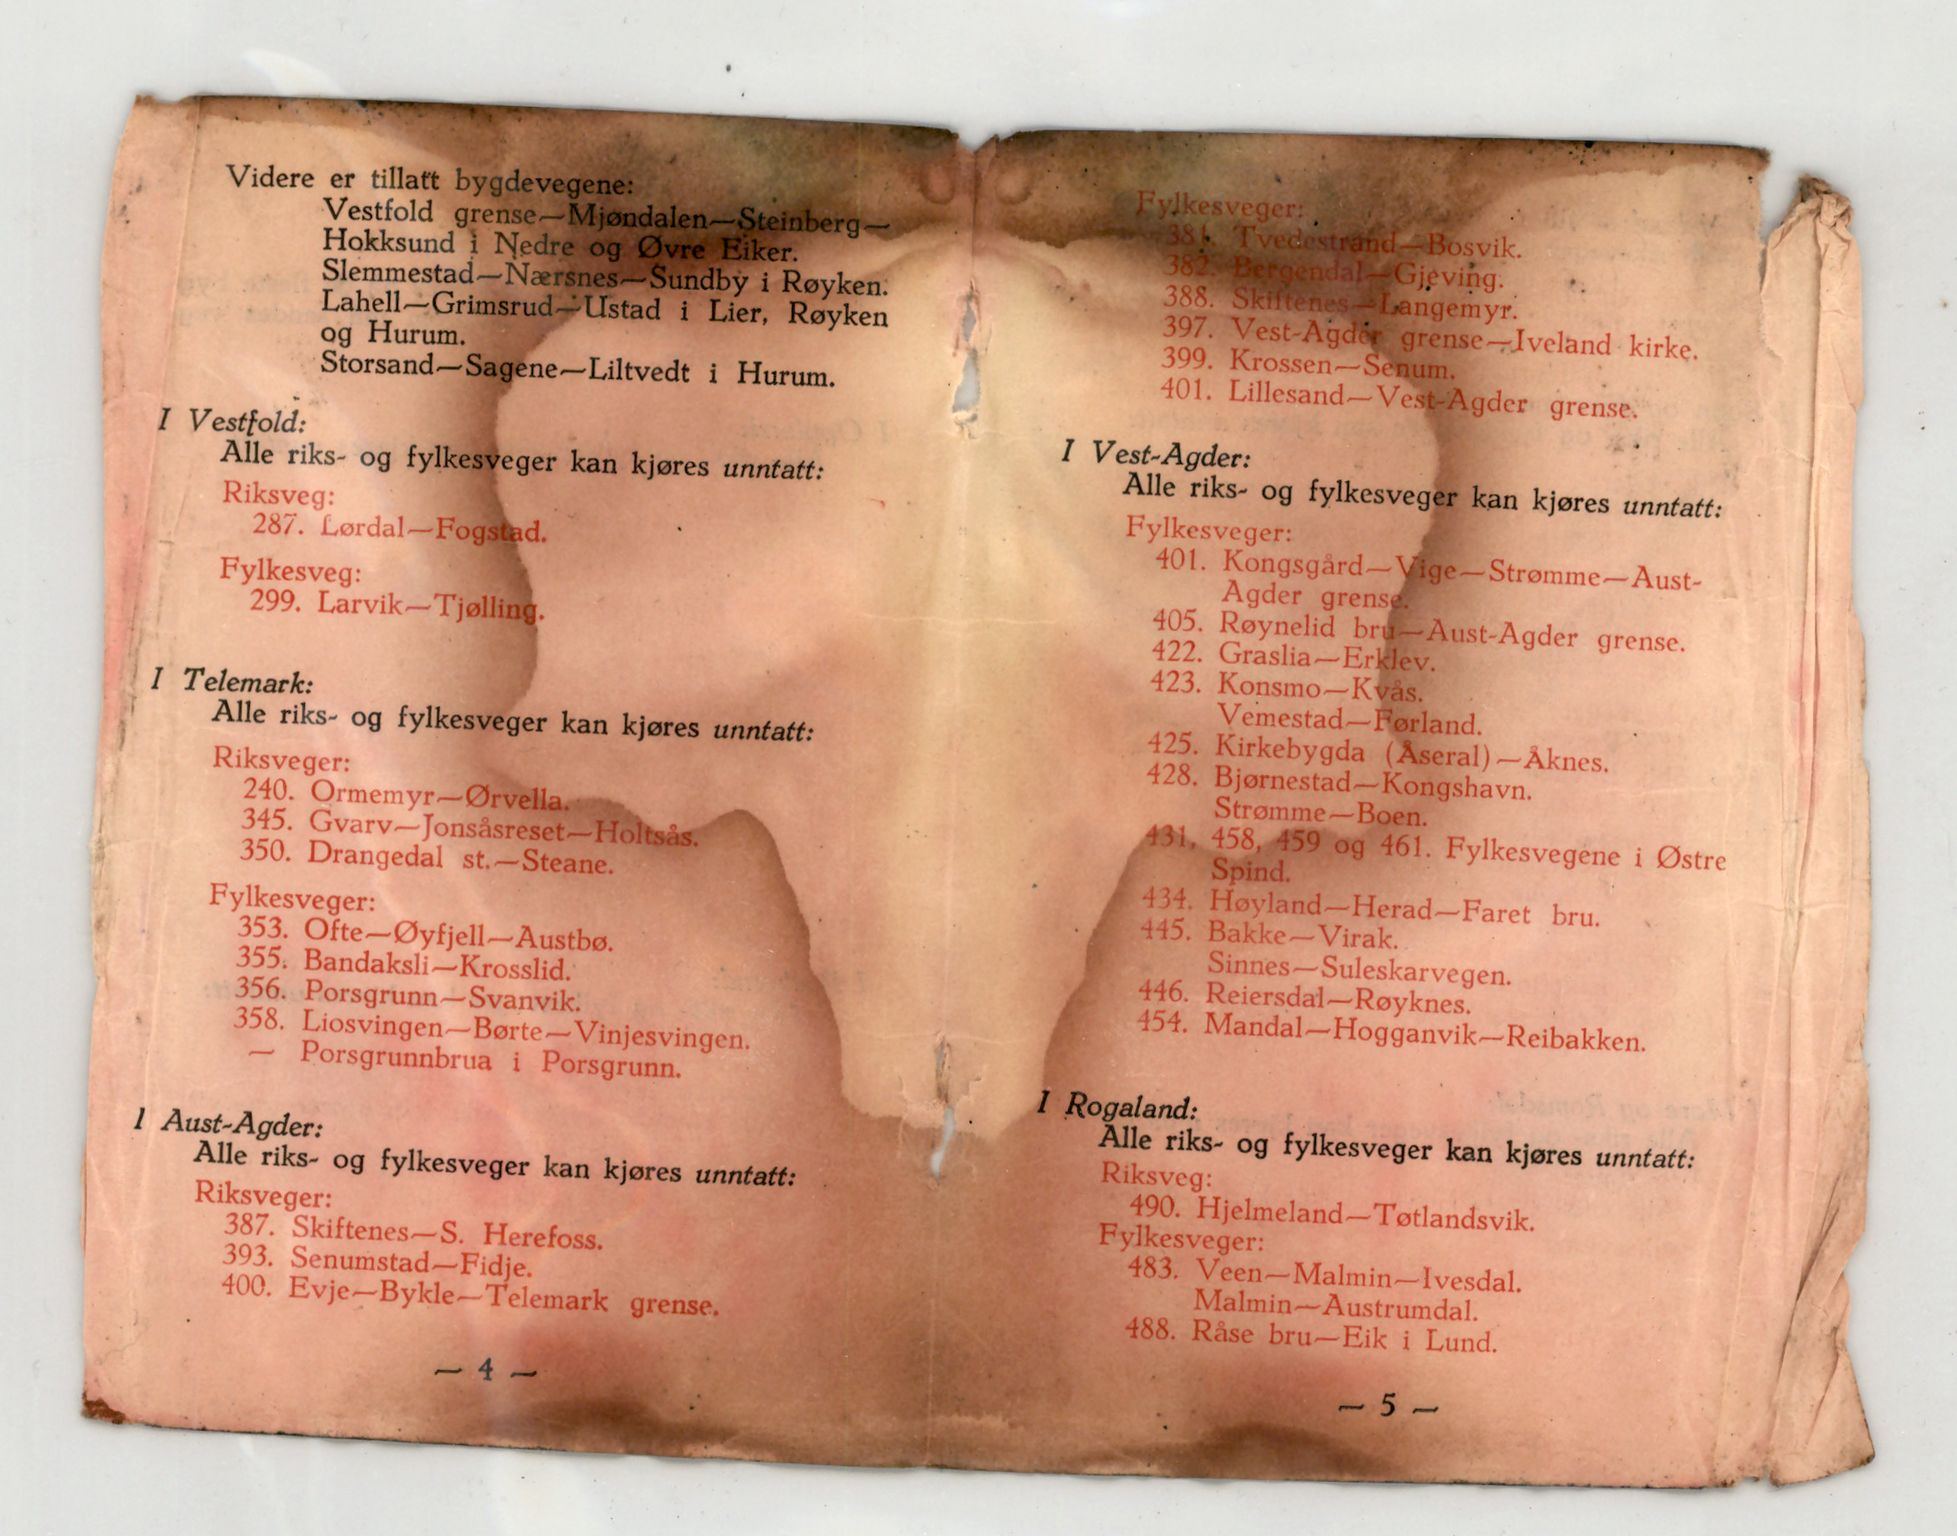 Videre er tillatt bygdevegene:
Vestfold grense—Mjøndalen—Steinberg—
Hokksund i Nedre og Øvre Eiker.
Slemmestad—Nærsnes—Sundby i Røyken.
Lahell—Grimsrud—Ustad i Lier, Røyken
og Hurum.
Storsand—Sagene—Liltvedt i Hurum.
I Vestfold:
Alle riks- og fylkesveger kan kjøres unntatt:
Riksveg:
287. Lørdal—Fogstad.
Fylkesveg:
299. Larvik—Tjølling.
I Telemark:
Alle riks- og fylkesveger kan kjøres unntatt:
Riksveger:
240. Ormemyr—Ørvella.
345. Gvarv—Jonsåsreset—Holtsås.
350. Drangedal st.—Steane.
Fylkesveger:
353. Ofte—Øyfjell—Austbø.
355. Bandaksli—Krosslid.
356. Porsgrunn—Svanvik.
358. Liosvingen—Børte—Vinjesvingen.
— Porsgrunnbrua i Porsgrunn.
I Aust-Agder:
Alle riks- og fylkesveger kan kjøres unntatt:
Riksveger:
387. Skiftenes—S. Herefoss.
393. Senumstad—Fidje.
400. Evje—Bykle—Telemark grense.
— 4 —
Fylkesveger:
381. Tvedestrand—Bosvik.
382. Bergendal—Gjeving.
388. Skiftenes—Langemyr.
397. Vest-Agder grense—Iveland kirke.
399. Krossen—Senum.
401. Lillesand—Vest-Agder grense.
I Vest-Agder:
Alle riks- og fylkesveger kan kjøres unntatt:
Fylkesveger:
401. Kongsgård—Vige—Strømme—Aust-
Agder grense.
405. Røynelid bru—Aust-Agder grense.
422. Graslia—Erklev.
423. Konsmo—Kvås.
Vemestad—Førland.
425. Kirkebygda (Åseral)—Åknes.
428. Bjørnestad—Kongshavn.
Strømme—Boen.
431, 458, 459 og 461. Fylkesvegene i Østre
Spind.
434. Høyland—Herad—Faret bru.
445. Bakke—Virak.
Sinnes—Suleskarvegen.
446. Reiersdal—Røyknes.
454. Mandal—Hogganvik—Reibakken.
I Rogaland:
Alle riks- og fylkesveger kan kjøres unntatt:
Riksveg:
490. Hjelmeland—Tøtlandsvik.
Fylkesveger:
483. Veen—Malmin—Ivesdal.
Malmin—Austrumdal.
488. Råse bru—Eik i Lund.
— 5 —